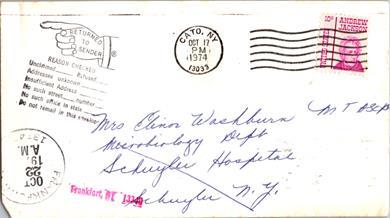 RETURNED
TO
SENDER
REASON CHECKED
Unclaimed Refused
Addressee unknown
Insufficient Address
No such street number
No such office in state
Do not remail in this envelope
CATO, NY
OCT 17
PM
1974
13033
10c ANDREW
JACKSON
Mrs Elinor Washburn MT ASCP
Microbiology Dept
Schuyler Hospital
Schuyler N.Y.
Frankfort, NY 13340
OCT
22
A.M.